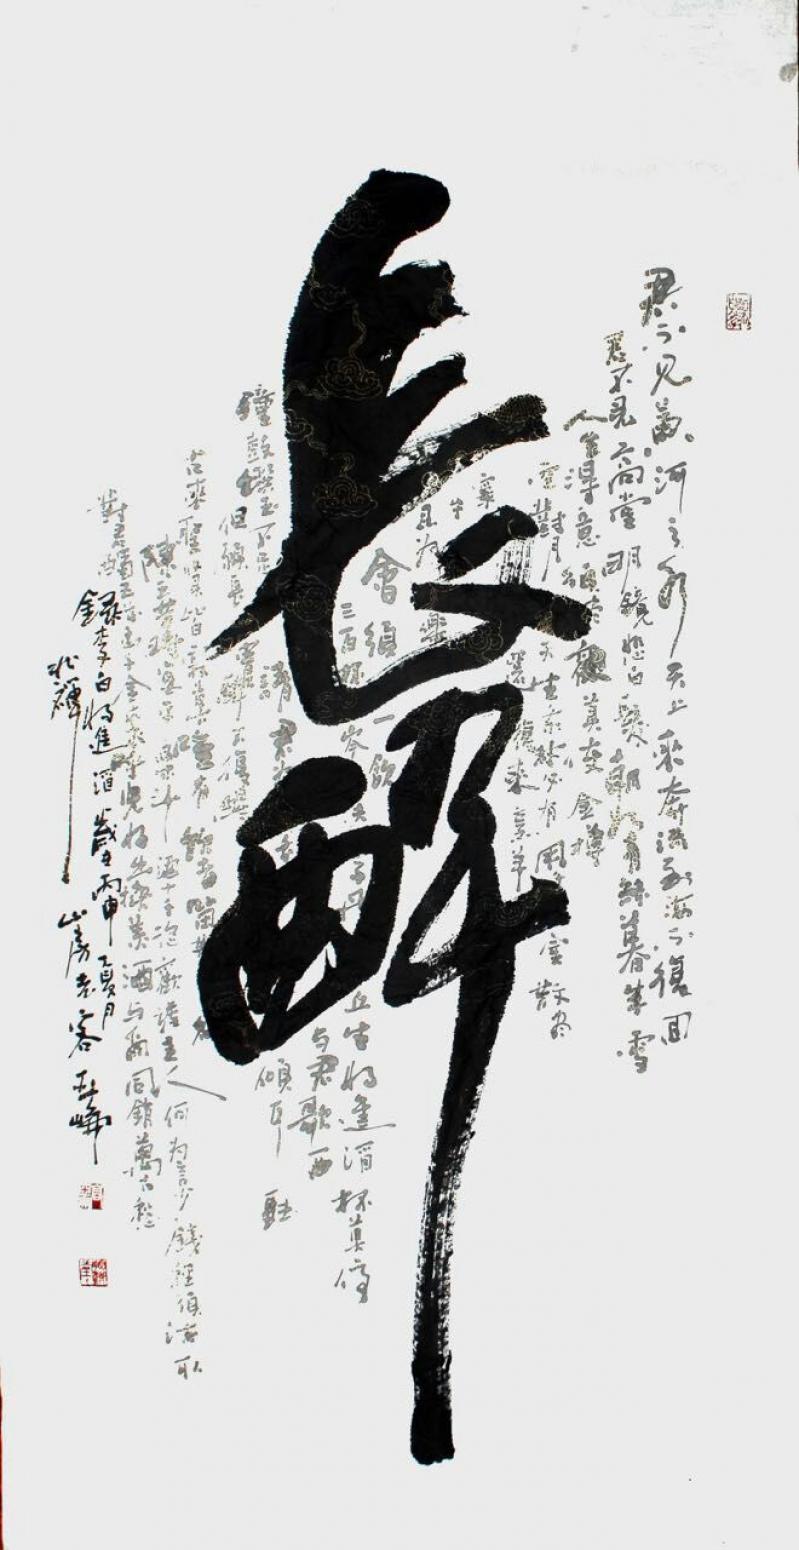 長醉
君不見黃河之水天上來奔流到海不復回
君不見高堂明鏡悲白髮朝如青絲暮成雪
人生得意須盡歡莫使金樽
空對月天生我材必有用千金散盡
還復來烹羊
宰牛
且為樂
會須一飲
三百杯岑夫子丹丘生將進酒杯莫停
與君歌一曲
請君為我傾耳聽
鐘鼓饌玉不足
但願長醉不復醒
古來聖賢皆寂寞惟有飲者留其名
陳王昔時宴平樂斗酒十千恣歡謔主人何為言少錢徑須沽取
對君酌五花馬千金裘呼兒將出換美酒與爾同銷萬古愁
錄李白將進酒歲丙申夏月山房老客